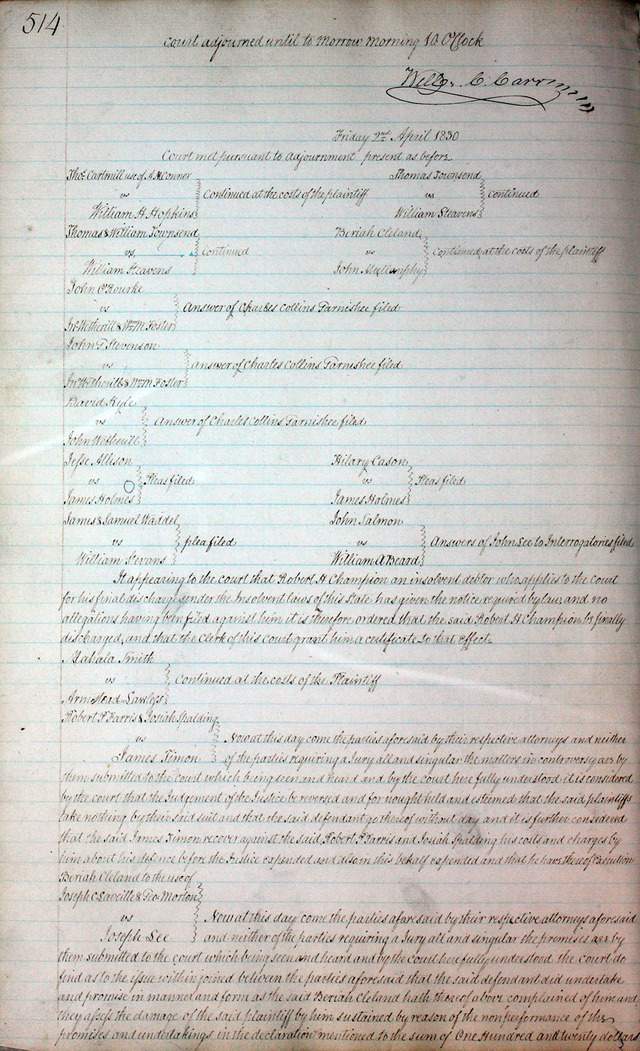 514
Court adjourned until to Morrow Morning 10 O'Clock
Will. C. Carr
Friday 2nd April 1830
Court met pursuant to adjournment present as before
Thos. Cartmill use of A McConner
vs
William H Hopkins
Continued at the costs of the plaintiff
Thomas Townsend
vs
William Steavens
continued
Thomas & William Townsend
vs
William Steavens
continued
Beriah Cleland
vs
John Mullanphy
Continued at the costs of the plaintiff
John O'Rourke
vs
Jno. Wetherill & Wm M Foster
Answer of Charles Collins Garnishee filed
John D Stevenson
vs
Jno. Wetherill & Wm M Foster
Answer of Charles Collins Garnishee filed
David Kyle
vs
John Wetherill
Answer of Charles Collins Garnishee filed
Jesse Allison
vs
James Holmes
Pleas filed
Hilary Cason
vs
James Holmes
Pleas filed
James & Samuel Waddel
vs
William Stevans
plea filed
John Salmon
vs
William A Beard
Answers of John Lee to Interrogatories filed
It appearing to the court that Robert H Champion an insolvent debtor who applies to the Court
for his final discharge under the Insolvent laws of this State has given the notice required by law and no
allegations having been filed against him it is therefore ordered that the said Robert H Champion be finally
discharged, and that the Clerk of this court grant him a certificate to that effect
Mahala Smith
vs
Armstead Lawless
Continued at the costs of the Plaintiff
Robert P Farris & Josiah Spalding
vs
James Timon
Now at this day come the parties aforesaid by their respective attorneys and neither
of the parties requiring a Jury all and singular the matters in controversy are by
them submitted to the court which being seen and heard and by the court here fully understood it is considered
by the court that the Judgement of the Justice be reversed and for nought held and esteemed that the said plaintiffs
take nothing by their said suit and that the said defendant go thereof without day and it is further considered
that the said James Timon recover against the said Robert P Farris and Josiah Spalding his costs and charges by
him about his defence before the Justice expended and also in this behalf expended and that he have thereof Execution
Beriah Cleland to the use of
Joseph C Laveille & Geo. Morton
vs
Joseph Lee
Now at this day come the parties aforesaid by their respective attorneys aforesaid
and neither of the parties requiring a Jury all and singular the premises are by
them submitted to the court which being seen and heard and by the Court here fully understood the court do
find as to the issue within joined between the parties aforesaid that the said defendant did undertake
and promise in manner and form as the said Beriah Cleland hath thereof above complained of him and
they assess the damage of the said plaintiff by him sustained by reason of the nonperformance of the
promises and undertakings in the declaration mentioned to the sum of One Hundred and twenty dollars